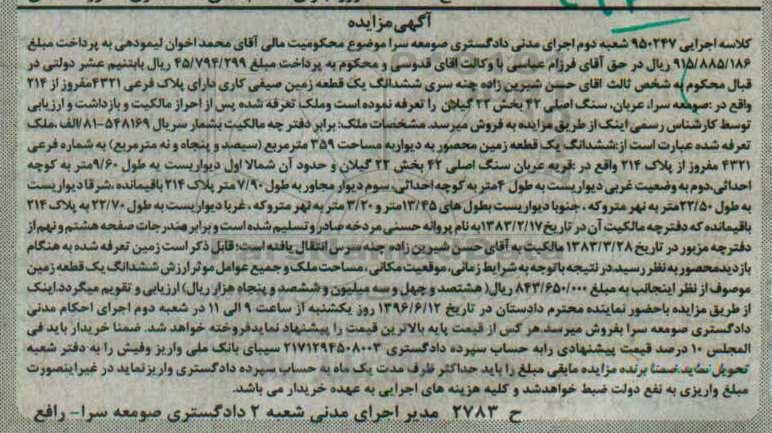 آگهی مزایده
کلاسه اجرایی ۹۵۰۲۴۷ شعبه دوم اجرای مدنی دادگستری صومعه سرا موضوع محکومیت مالی آقای محمد اخوان لیمودهی به پرداخت مبلغ
۹۱۵/۸۸۵/۱۸۶ ریال در حق آقای فرزام عباسی با وکالت اقای قدوسی و محکوم به پرداخت مبلغ ۴۵/۷۹۴/۲۹۹ ریال بابت نیم عشر دولتی در
قبال محکوم به شخص ثالث اقای حسن شیرین زاده چنه سری ششدانگ یک قطعه زمین صیفی کاری دارای پلاک فرعی ۴۳۲۱ مفروز از ۲۱۴
واقع در :صومعه سرا، عربان، سنگ اصلی ۴۲ بخش ۲۲ گیلان را تعرفه نموده است وملک تعرفه شده پس از احراز مالکیت و بازداشت و ارزیابی
توسط کارشناس رسمی اینک از طریق مزایده به فروش میرسد. مشخصات ملک: برابر دفتر چه مالکیت بشمار سریال ۵۴۸۱۶۹-۸۱/الف ،ملک
تعرفه شده عبارت است از:ششدانگ یک قطعه زمین محصور به دیوار به مساحت ۳۵۹ مترمربع (سیصد و پنجاه و نه مترمربع) به شماره فرعی
۴۳۲۱ مفروز از پلاک ۲۱۴ واقع در :قریه عربان سنگ اصلی ۴۲ بخش ۲۲ گیلان و حدود آن شمالا اول دیواریست به طول ۹/۶۰متر به کوچه
احداثی،دوم به وضعیت غربی دیواریست به طول ۴متر به کوچه احداثی، سوم دیوار مجاور به طول ۷/۹۰ متر پلاک ۲۱۴ باقیمانده ،شرقا دیواریست
به طول ۲۲/۵۰متر به نهر متروکه ، جنوبا دیواریست بطول های ۱۳/۴۵متر و ۳/۲۰ متر به نهر متروکه ، غربا دیواریست به طول ۲۲/۷۰ به پلاک ۲۱۴
باقیمانده که دفترچه مالکیت آن در تاریخ ۱۳۸۳/۲/۱۷ به نام پروانه حسنی مردخه صادر و تسلیم شده است و برابر مندرجات صفحه هشتم و نهم از
دفترچه مزبور در تاریخ ۱۳۸۳/۳/۲۸ مالکیت به آقای حسن شیرین زاده چنه سرس انتقال یافته است؛ قابل ذکر است زمین تعرفه شده به هنگام
بازدید محصور به نظر رسید،در نتیجه با توجه به شرایط زمانی، موقعیت مکانی ، مساحت ملک و جمیع عوامل موثر ارزش ششدانگ یک قطعه زمین
موصوف از نظر اینجانب به مبلغ ۸۴۳/۶۵۰/۰۰۰ ریال( هشتصد و چهل و سه میلیون و ششصد و پنجاه هزار ریال) ارزیابی و تقویم میگردد.اینک
از طریق مزایده باحضور نماینده محترم دادستان در تاریخ ۱۳۹۶/۶/۱۲ روز یکشنبه از ساعت ۹ الی ۱۱ در شعبه دوم اجرای احکام مدنی
دادگستری صومعه سرا بفروش میرسد.هر کس از قیمت پایه بالاترین قیمت را پیشنهاد نماید فروخته خواهد شد. ضمنا خریدار باید فی
المجلس ۱۰ درصد قیمت پیشنهادی رابه حساب سپرده دادگستری ۲۱۷۱۲۹۴۵۰۸۰۰۳ سیبای بانک ملی واریز وفیش را به دفتر شعبه
تحویل نماید.ضمنا برنده مزایده مابقی مبلغ را باید حداکثر ظرف مدت یک ماه به حساب سپرده دادگستری واریز نماید در غیر اینصورت
مبلغ واریزی به نفع دولت ضبط خواهدشد و کلیه هزینه های اجرایی به عهده خریدار می باشد.
ح ۲۷۸۳ مدیر اجرای مدنی شعبه ۲ دادگستری صومعه سرا- رافع